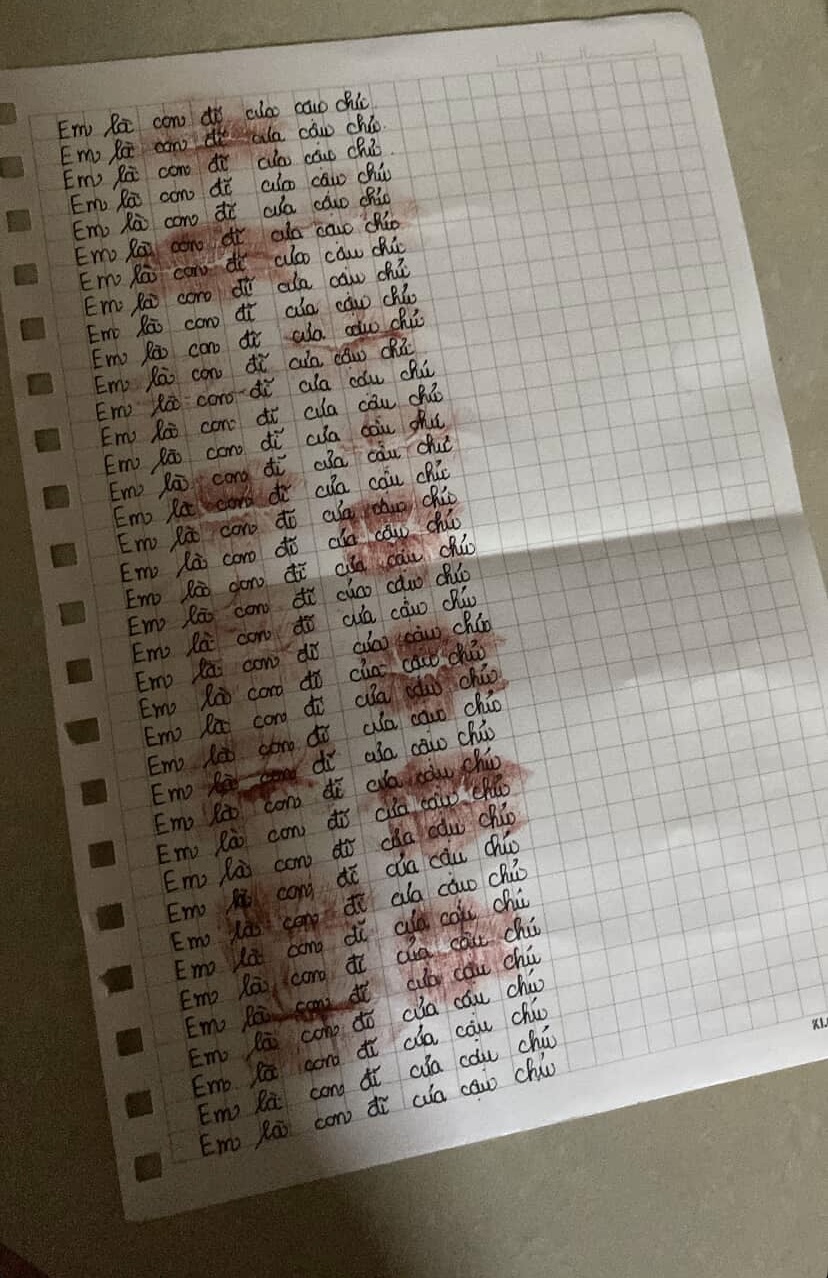 Em là con đĩ của cậu chủ
Em là con đĩ của cậu chủ
Em là con đĩ của cậu chủ
Em là con đĩ của cậu chủ
Em là con đĩ của cậu chủ
Em là con đĩ của cậu chủ
Em là con đĩ của cậu chủ
Em là con đĩ của cậu chủ
Em là con đĩ của cậu chủ
Em là con đĩ của cậu chủ
Em là con đĩ của cậu chủ
Em là con đĩ của cậu chủ
Em là con đĩ của cậu chủ
Em là con đĩ của cậu chủ
Em là con đĩ của cậu chủ
Em là con đĩ của cậu chủ
Em là con đĩ của cậu chủ
Em là con đĩ của cậu chủ
Em là con đĩ của cậu chủ
Em là con đĩ của cậu chủ
Em là con đĩ của cậu chủ
Em là con đĩ của cậu chủ
Em là con đĩ của cậu chủ
Em là con đĩ của cậu chủ
Em là con đĩ của cậu chủ
Em là con đĩ của cậu chủ
Em là con đĩ của cậu chủ
Em là con đĩ của cậu chủ
Em là con đĩ của cậu chủ
Em là con đĩ của cậu chủ
Em là con đĩ của cậu chủ
Em là con đĩ của cậu chủ
Em là con đĩ của cậu chủ
Em là con đĩ của cậu chủ
Em là con đĩ của cậu chủ
Em là con đĩ của cậu chủ
Em là con đĩ của cậu chủ
Em là con đĩ của cậu chủ